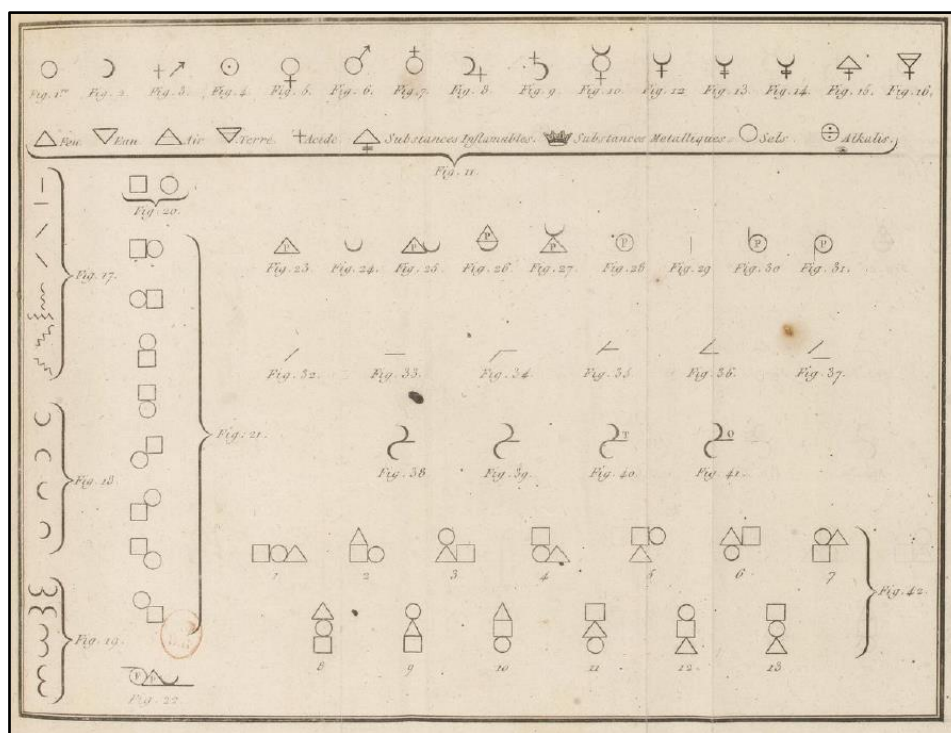 Fig. 1.re Fig. 2. Fig. 3. Fig. 4. Fig. 5. Fig. 6. Fig. 7. Fig. 8. Fig. 9. Fig. 10. Fig. 12. Fig. 13. Fig. 14. Fig. 15. Fig. 16.
Feu. Eau. Air. Terre. Acide. Substances Inflamables. Substances Metalliques. Sels. Alkalis.
Fig. 11.
Fig. 20.
Fig. 17.
P P P P P P P
Fig. 23. Fig. 24. Fig. 25. Fig. 26. Fig. 27. Fig. 28. Fig. 29. Fig. 30. Fig. 31.
Fig. 32. Fig. 33. Fig. 34. Fig. 35. Fig. 36. Fig. 37.
Fig. 21.
T O
Fig. 38. Fig. 39. Fig. 40. Fig. 41.
Fig. 18.
1 2 3 4 5 6 7
Fig. 42.
Fig. 19.
8 9 10 11 12 13
P
Fig. 22.